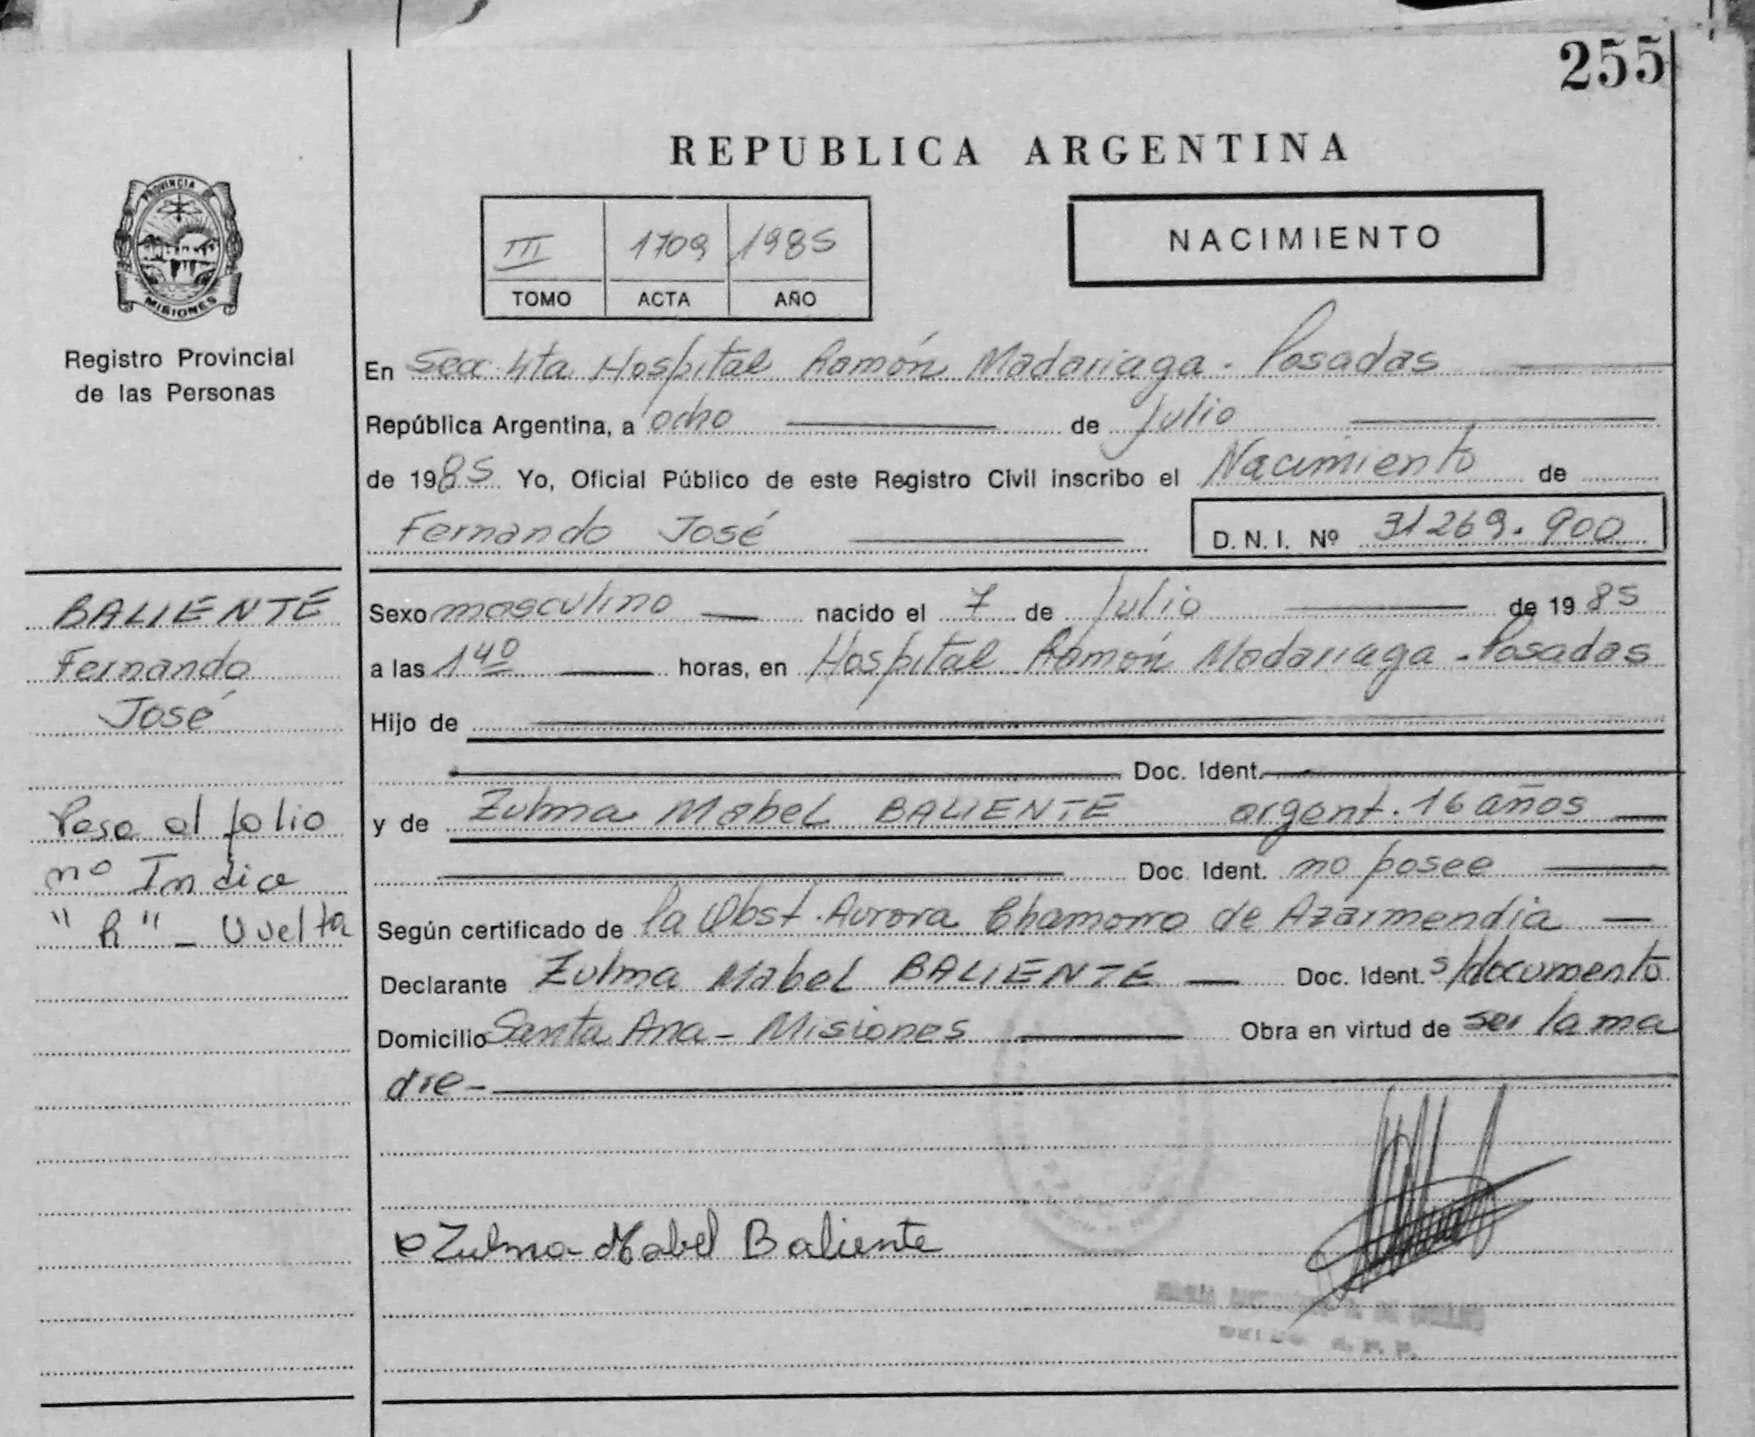 255
REPUBLICA ARGENTINA
PROVINCIA DE
MISIONES
Registro Provincial
de las Personas
III 1709 1985
TOMO ACTA AÑO
NACIMIENTO
En Secc 4ta Hospital Ramón Madariaga - Posadas
República Argentina, a ocho de Julio
de 1985 Yo, Oficial Público de este Registro Civil inscribo el Nacimiento de
Fernando José
D. N. I. Nº 31269.900
BALIENTE
Fernando
José
Pase al folio
nº Indice
"R" - Vuelta
Sexo masculino nacido el 7 de Julio de 1985
a las 1 40 horas, en Hospital Ramón Madariaga - Posadas
Hijo de
Doc. Ident.
y de Zulma Mabel BALIENTE argent. 16 años
Doc. Ident. no posee
Según certificado de la Obst. Aurora Chamorro de Azarmendia
Declarante Zulma Mabel BALIENTE Doc. Ident. s/documento
Domicilio Santa Ana - Misiones Obra en virtud de ser la ma
dre -
Zulma Mabel Baliente